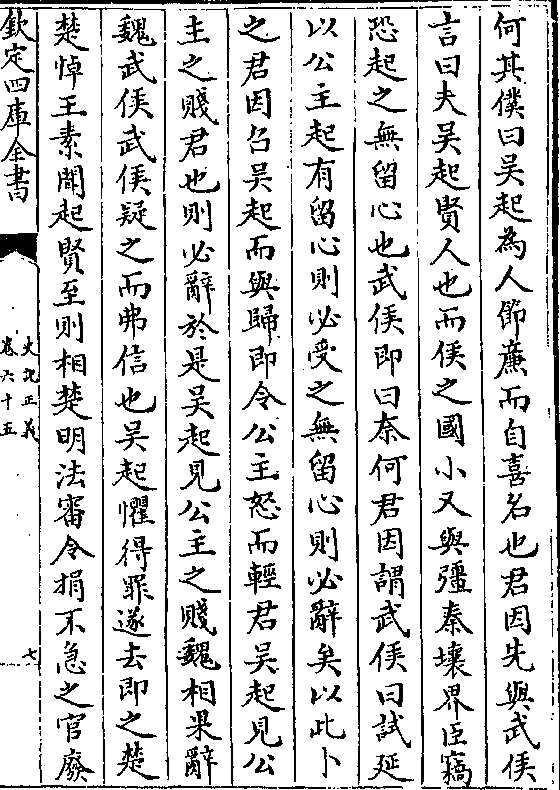 何其僕曰吳起為人節廉而自喜名也君因先與武侯
言曰夫吳起賢人也而侯之國小又與彊秦壤界臣竊
恐起之無留心也武侯即曰奈何君因謂武侯曰試延
以公主起有留心則必受之無留心則必辭矣以此卜
之君因召吳起而與歸即令公主怒而輕君吳起見公
主之賤君也則必辭於是吳起見公主之賤魏相果辭
魏武侯武侯疑之而弗信也吳起懼得罪遂去即之楚
楚悼王素聞起賢至則相楚明法審令捐不急之官廢
欽定四庫全書
史記正義
卷六十五
七